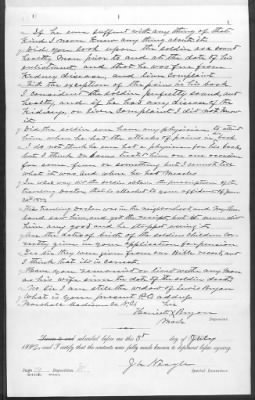 If he ever suffered with any thing of that
kind I never knew any thing about it.
Did you look upon the soldier as a sound
healthy man prior to and at the date of his
enlistment and that he was free from
Kidney disease, and Liver Complaint
With the exception of the pain in his back
I considered the soldier perfectly sound and
healthy and if he had any disease of the
Kidneys, or Liver Complaint I did not know
it.
Did the soldier ever have any physician to attend
him when he had the attacks of pain in back
I do not think he ever had a physician for his back
but I think Dr treated him on one occasion
for some fever or something but I cannot tell
what it was and when he had Measles
In what way did the soldier obtain the prescription of the
traveling doctor, that is alluded to your affidavit of
The traveling doctor was in the neighborhood and my Hus
band saw him and got the receipt but it never did
him any good and he stopped using it
Are the dates of birth of the soldiers children cor
rectly given in your application for pension
Yes Sir they were given from our Bible record and
I think that it is correct
Have you remained or lived with any man
as his wife since the death of the soldier
No Sir I am still the widow of Lewis Bryan
What is your present P.O. address
Marshall Madison Co. N.C.
her
Harriet X Bryan
Mark
subscribed before me this 8" day of July
and I certify that the contents were fully made known to deponent before signing.
Special Examiner
Page
Deposition